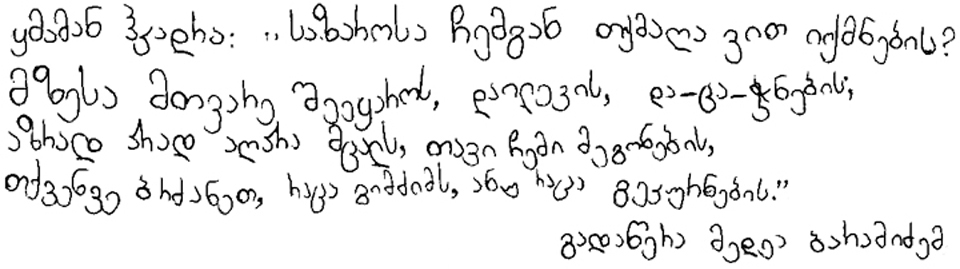 ყმამან ჰკადრა: „საზაროსა ჩემგან თქმალა ვით იქმნების?
მზესა მთვარე შეეყაროს, დაილევის, და-ცა-ჭნების;
აზრად არად აღარა მცალს, თავი ჩემი მეგონების,
თქვენვე ბრძანეთ, რაცა გიმძიმს, ანუ რაცა გეკურნების.”
გადაწერა მედეა ბარამიძემ